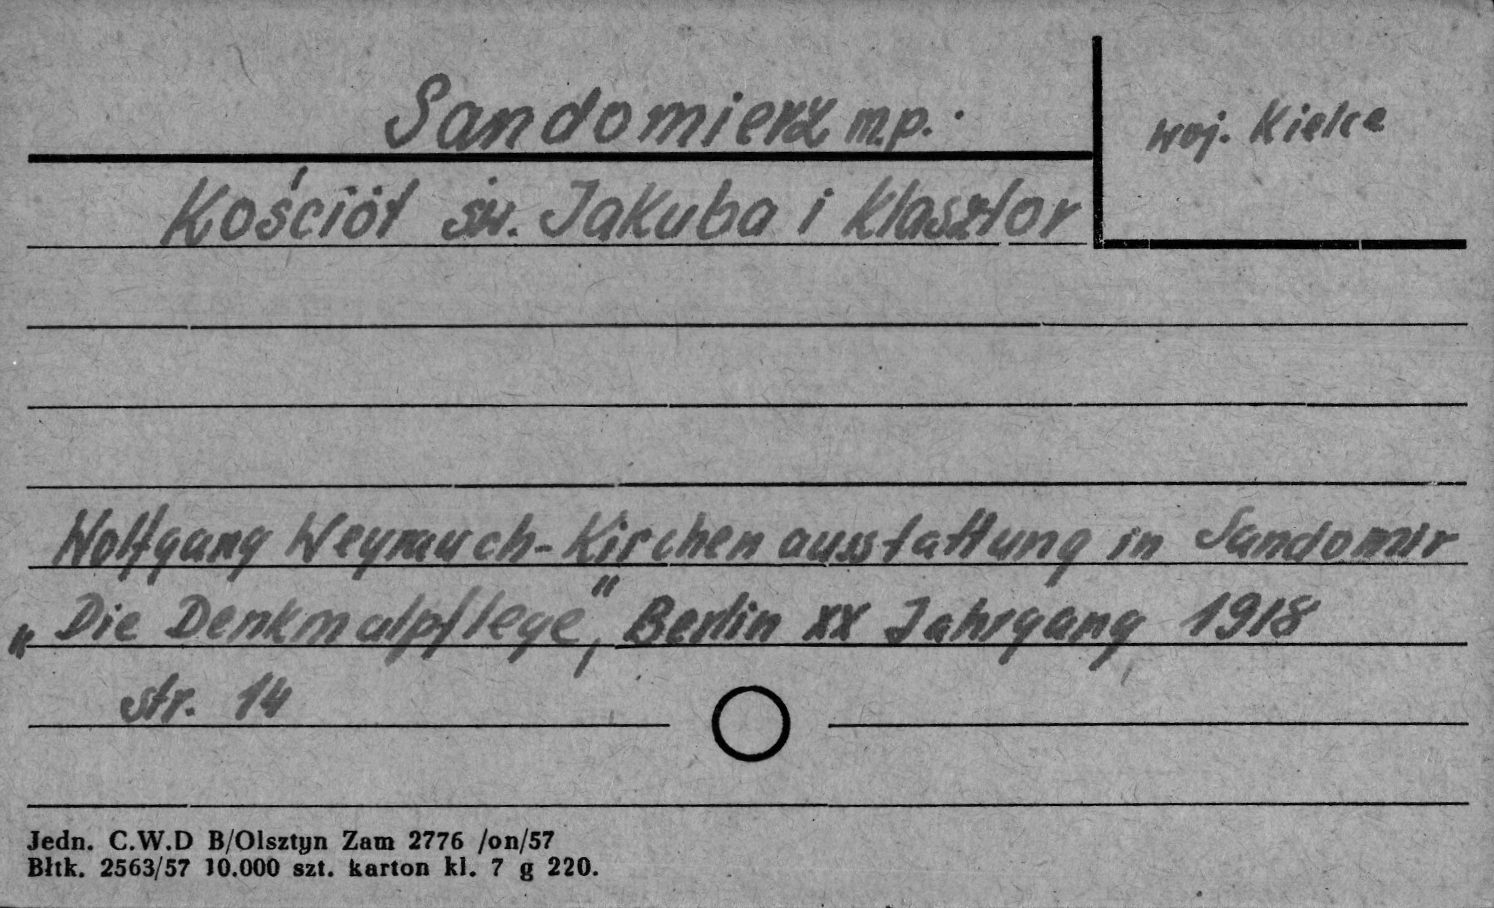 Sandomierz m.p.
woj. Kielce
Kościół św. Jakuba i klasztor
Wolfgang Weymuch - Kirchenausstattung in Sandomir
"Die Denkmalpflege", Berlin XX Jahrgang 1918
str. 14
Jedn. C.W.D B/Olsztyn Zam 2776 /on/57
Błtk. 2563/57 10.000 szt. karton kl. 7 g 220.